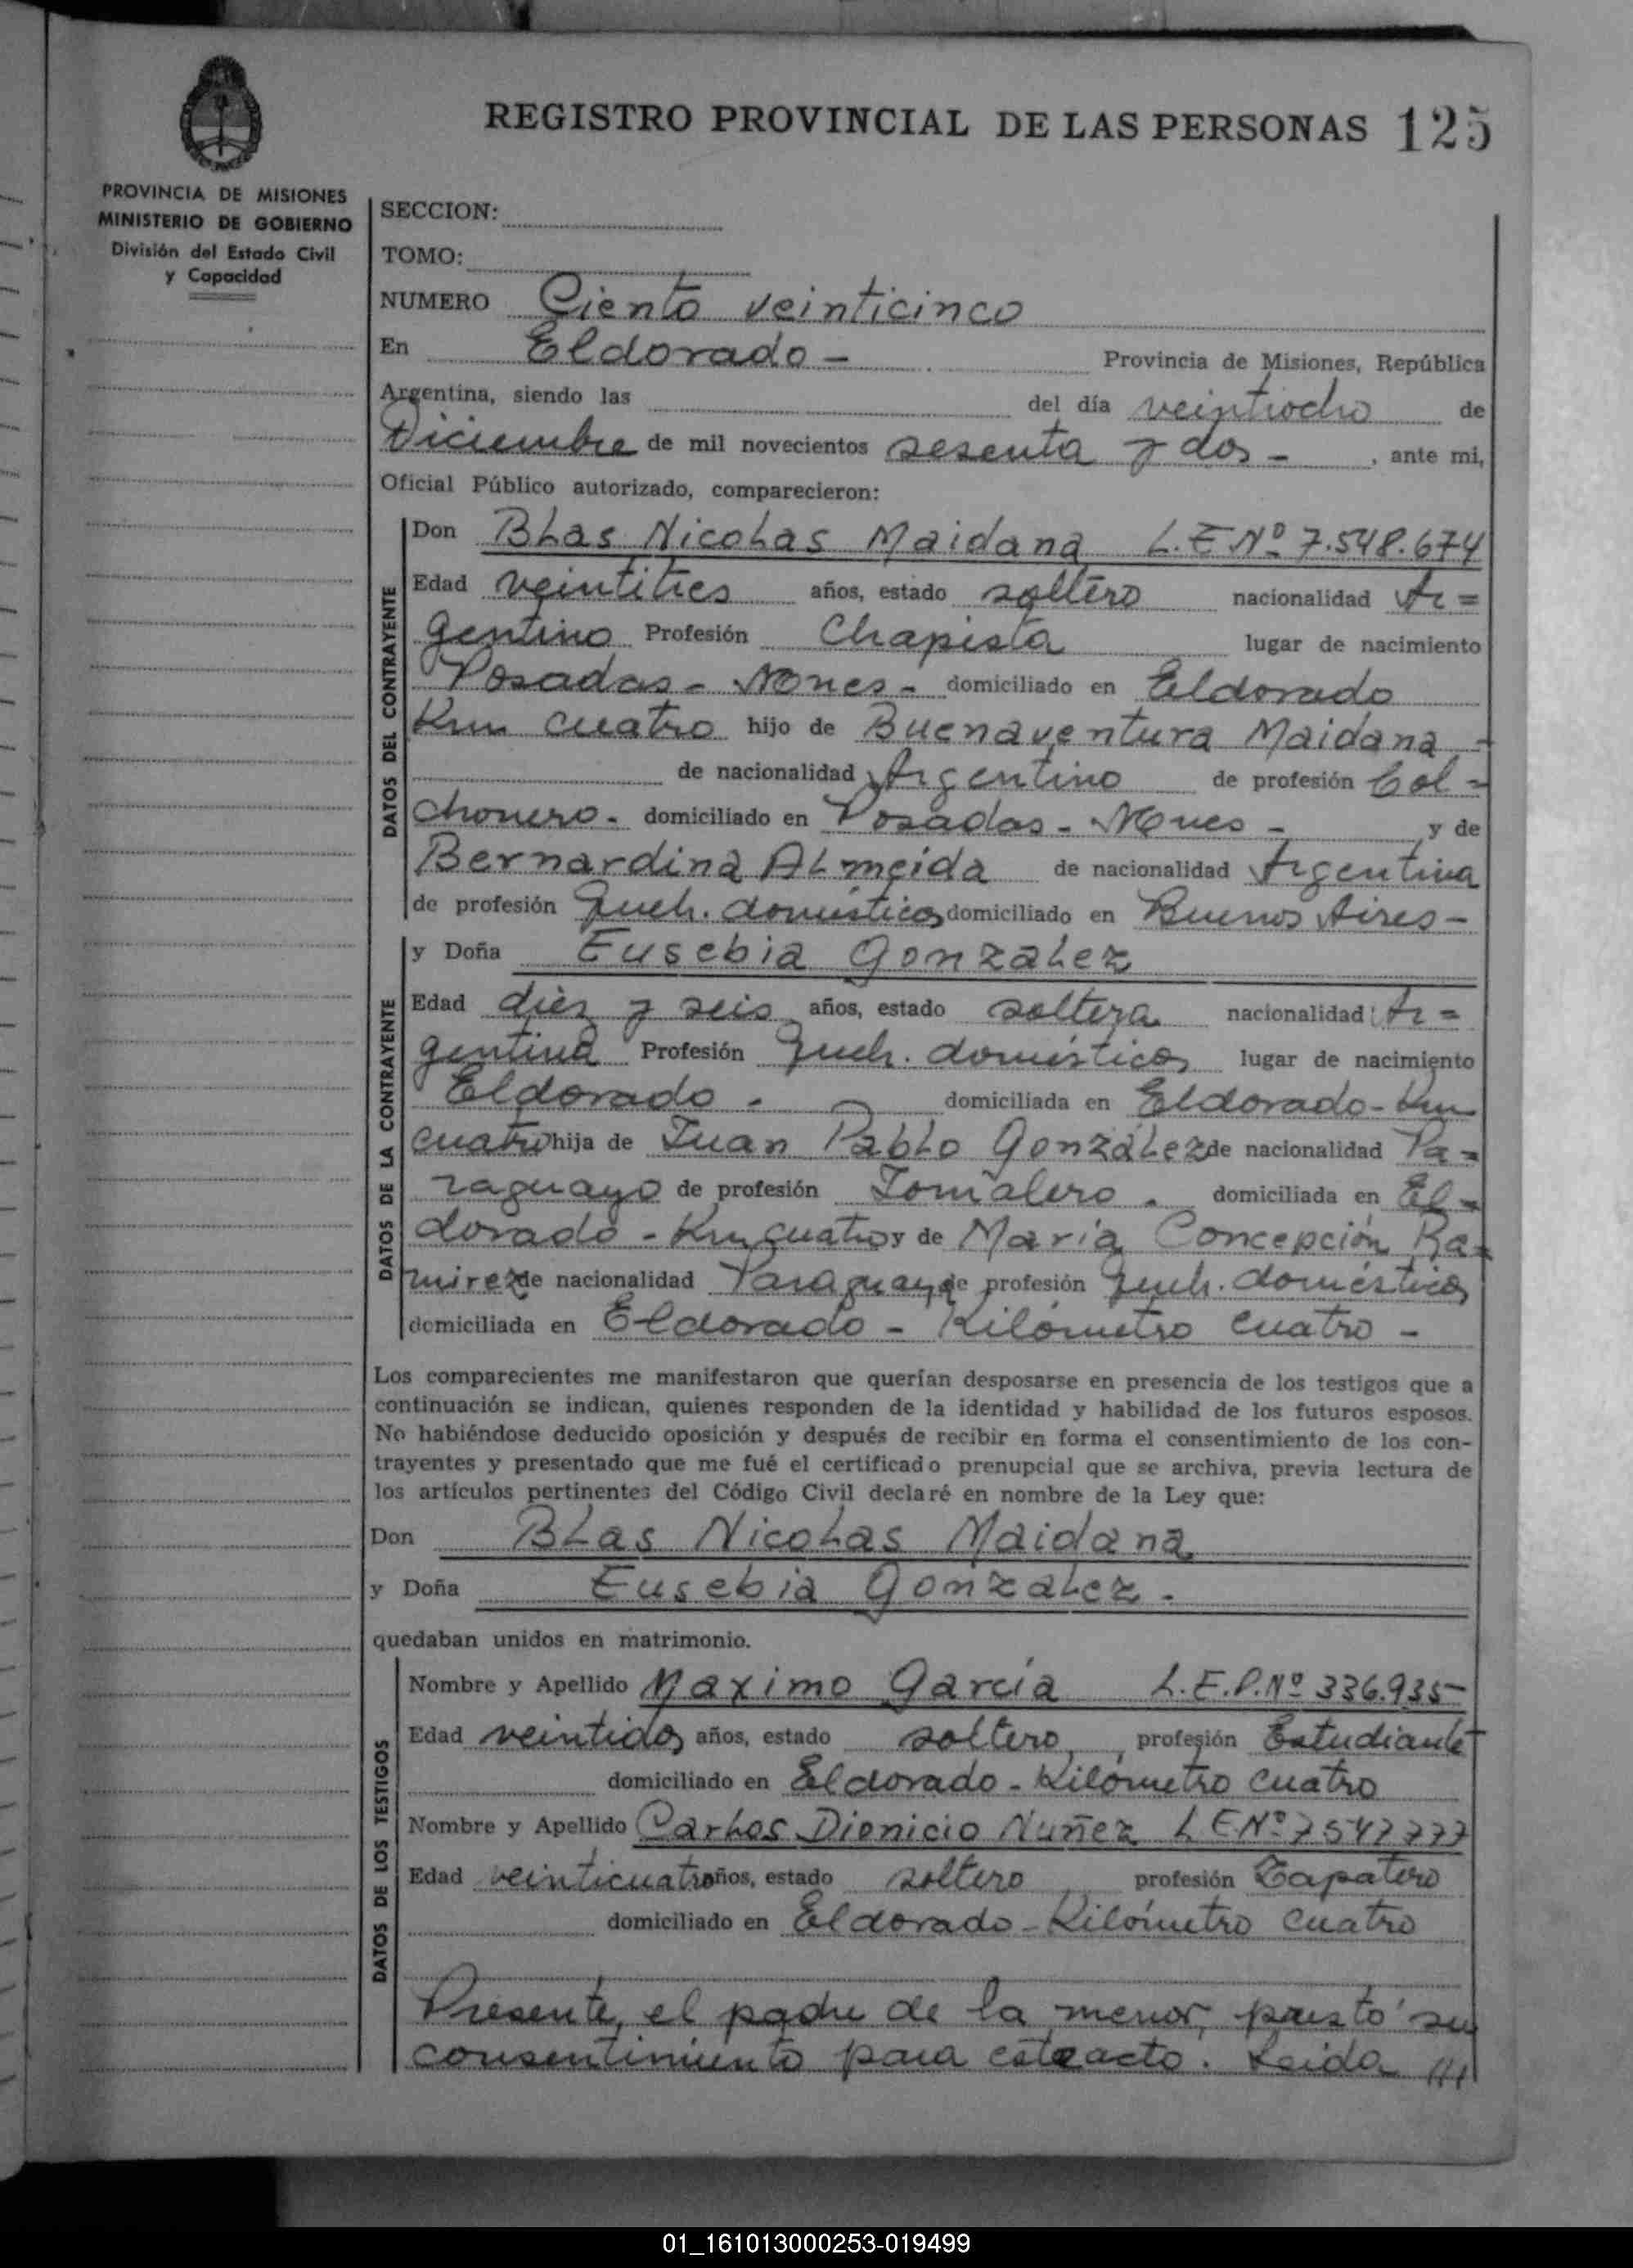 REGISTRO PROVINCIAL DE LAS PERSONAS 125
PROVINCIA DE MISIONES
MINISTERIO DE GOBIERNO
División del Estado Civil
y Capacidad
SECCION:
TOMO:
NUMERO Ciento veinticinco
En Eldorado - Provincia de Misiones, República
Argentina, siendo las del día veintiocho de
Diciembre de mil novecientos sesenta y dos - , ante mi,
Oficial Público autorizado, comparecieron:
DATOS DEL CONTRAYENTE
Don BLas NicoLas Maidana L.E Nº 7.548.674
Edad veintitres años, estado soltero nacionalidad Ar=
gentino Profesión Chapista lugar de nacimiento
Posadas - Mones - domiciliado en Eldorado
Km cuatro hijo de Buenaventura Maidana -
de nacionalidad Argentino de profesión Col=
chonero - domiciliado en Posadas - Mones - y de
Bernardina ALmeida de nacionalidad Argentina
de profesión Queh. domésticos domiciliado en Buenos Aires -
DATOS DE LA CONTRAYENTE
y Doña Eusebia GonzaLez
Edad diez y seis años, estado soltera nacionalidad Ar=
gentina Profesión Queh. domésticos lugar de nacimiento
Eldorado - domiciliada en Eldorado - Km
cuatro hija de Juan PabLo GonzáLez de nacionalidad Pa=
raguayo de profesión Jornalero - domiciliada en El=
dorado - Km cuatro y de María Concepción Ra=
mirez de nacionalidad Paraguaya de profesión Queh. domésticos
domiciliada en Eldorado - Kilómetro cuatro -
Los comparecientes me manifestaron que querían desposarse en presencia de los testigos que a
continuación se indican, quienes responden de la identidad y habilidad de los futuros esposos.
No habiéndose deducido oposición y después de recibir en forma el consentimiento de los con-
trayentes y presentado que me fué el certificado prenupcial que se archiva, previa lectura de
los artículos pertinentes del Código Civil declaré en nombre de la Ley que:
Don BLas NicoLas Maidana
y Doña Eusebia GonzaLez -
quedaban unidos en matrimonio.
DATOS DE LOS TESTIGOS
Nombre y Apellido Maximo García L.E.P.Nº 336.935
Edad veintidos años, estado soltero, profesión Estudiante
domiciliado en Eldorado - Kilómetro cuatro
Nombre y Apellido CarLos Dionicio Nuñez L E Nº 7547777
Edad veinticuatro años, estado soltero profesión Zapatero
domiciliado en Eldorado - Kilómetro cuatro
Presente, el padre de la menor, prestó su
consentimiento para este acto. Leida ///
01_161013000253-019499